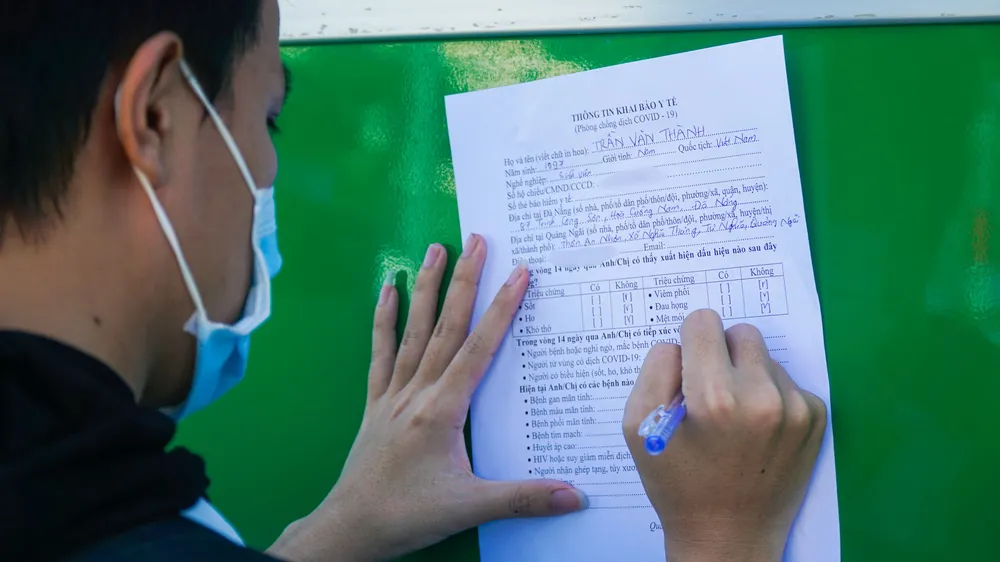 THÔNG TIN KHAI BÁO Y TẾ
(Phòng chống dịch COVID - 19)
Họ và tên (viết chữ in hoa): TRẦN VĂN THÀNH
Năm sinh: 1997 Giới tính: Nam Quốc tịch: Việt Nam
Nghề nghiệp: Sinh viên
Số hộ chiếu/CMND/CCCD:
Số thẻ bảo hiểm y tế:
Địa chỉ tại Đà Nẵng (số nhà, phố/tổ dân phố/thôn/đội, phường/xã, quận, huyện):
87 Trịnh Công Sơn, Hòa Cường Nam, Đà Nẵng
Địa chỉ tại Quảng Ngãi (số nhà, phố/tổ dân phố/thôn/đội, phường/xã, quận/huyện/thị
xã/thành phố): Thôn An Nhơn, Xã Nghĩa Thắng, Tư Nghĩa, Quảng Ngãi
Điện thoại: Email:
Trong vòng 14 ngày qua Anh/Chị có thấy xuất hiện dấu hiệu nào sau đây
Triệu chứng Có Không Triệu chứng Có Không
• Sốt [ ] [v] • Viêm phổi [ ] [v]
• Ho [ ] [v] • Đau họng [ ] [v]
• Khó thở [ ] [v] • Mệt mỏi [ ] [v]
Trong vòng 14 ngày qua Anh/Chị có tiếp xúc
• Người bệnh hoặc nghi ngờ, mắc bệnh COVID
• Người từ vùng có dịch COVID-19:
• Người có biểu hiện (sốt, ho, khó
Hiện tại Anh/Chị có các bệnh nào
• Bệnh gan mãn tính:
• Bệnh máu mãn tính:
• Bệnh phổi mãn tính:
• Bệnh tim mạch:
• Huyết áp cao:
• HIV hoặc suy giảm miễn dịch
• Người nhận ghép tạng, tủy xươ